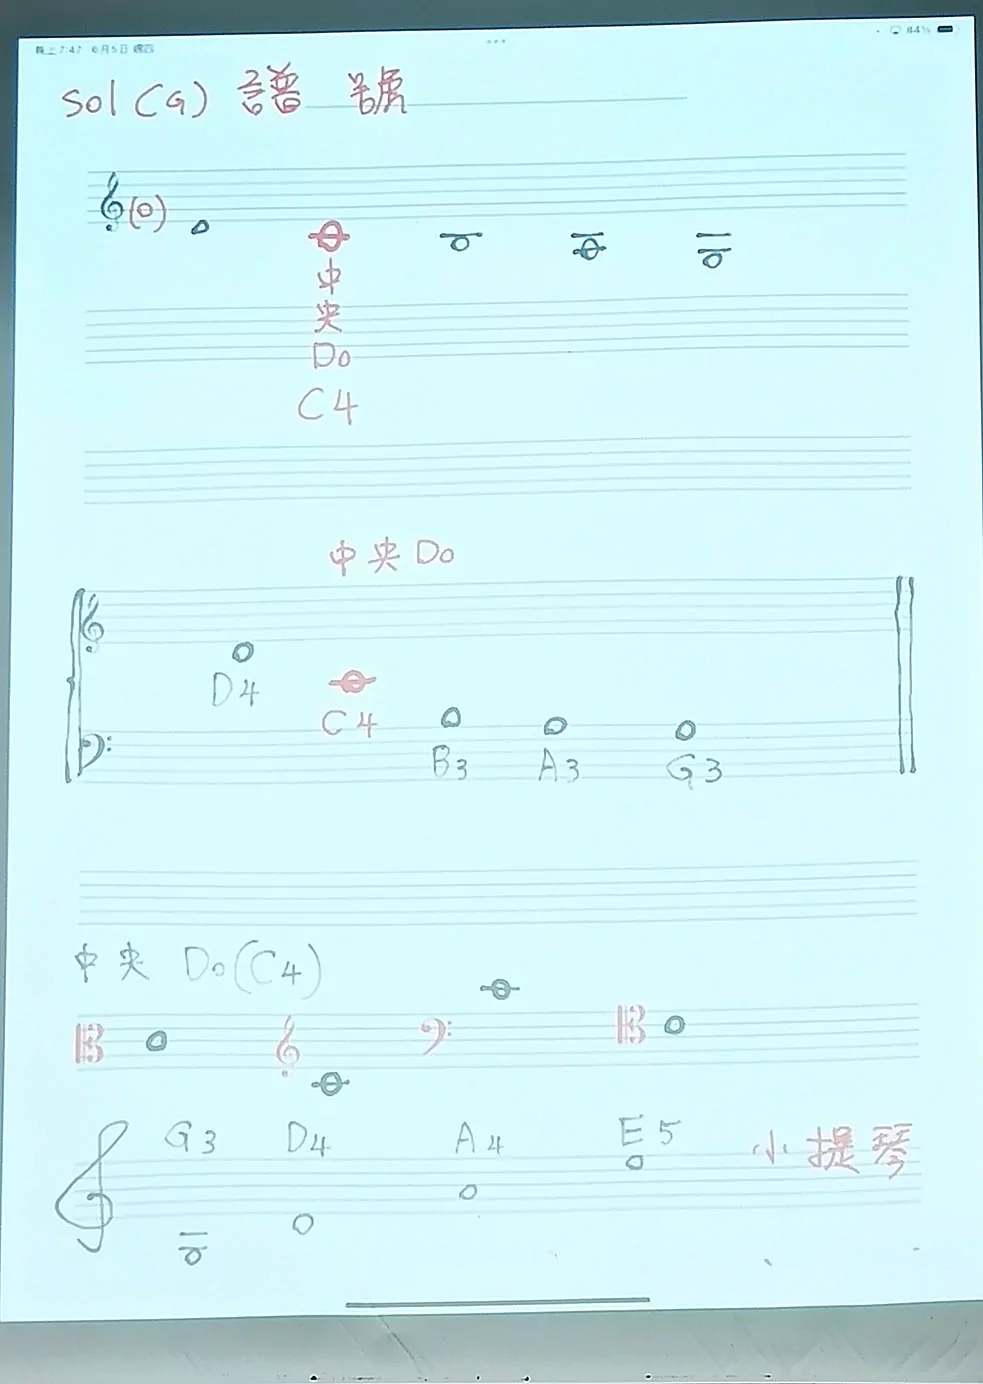 晚上7:47 6月5日 週四
84%
sol (G) 譜號
中
央
Do
C4
中央 Do
D4
C4
B3 A3 G3
中央 Do (C4)
G3 D4 A4 E5 小提琴